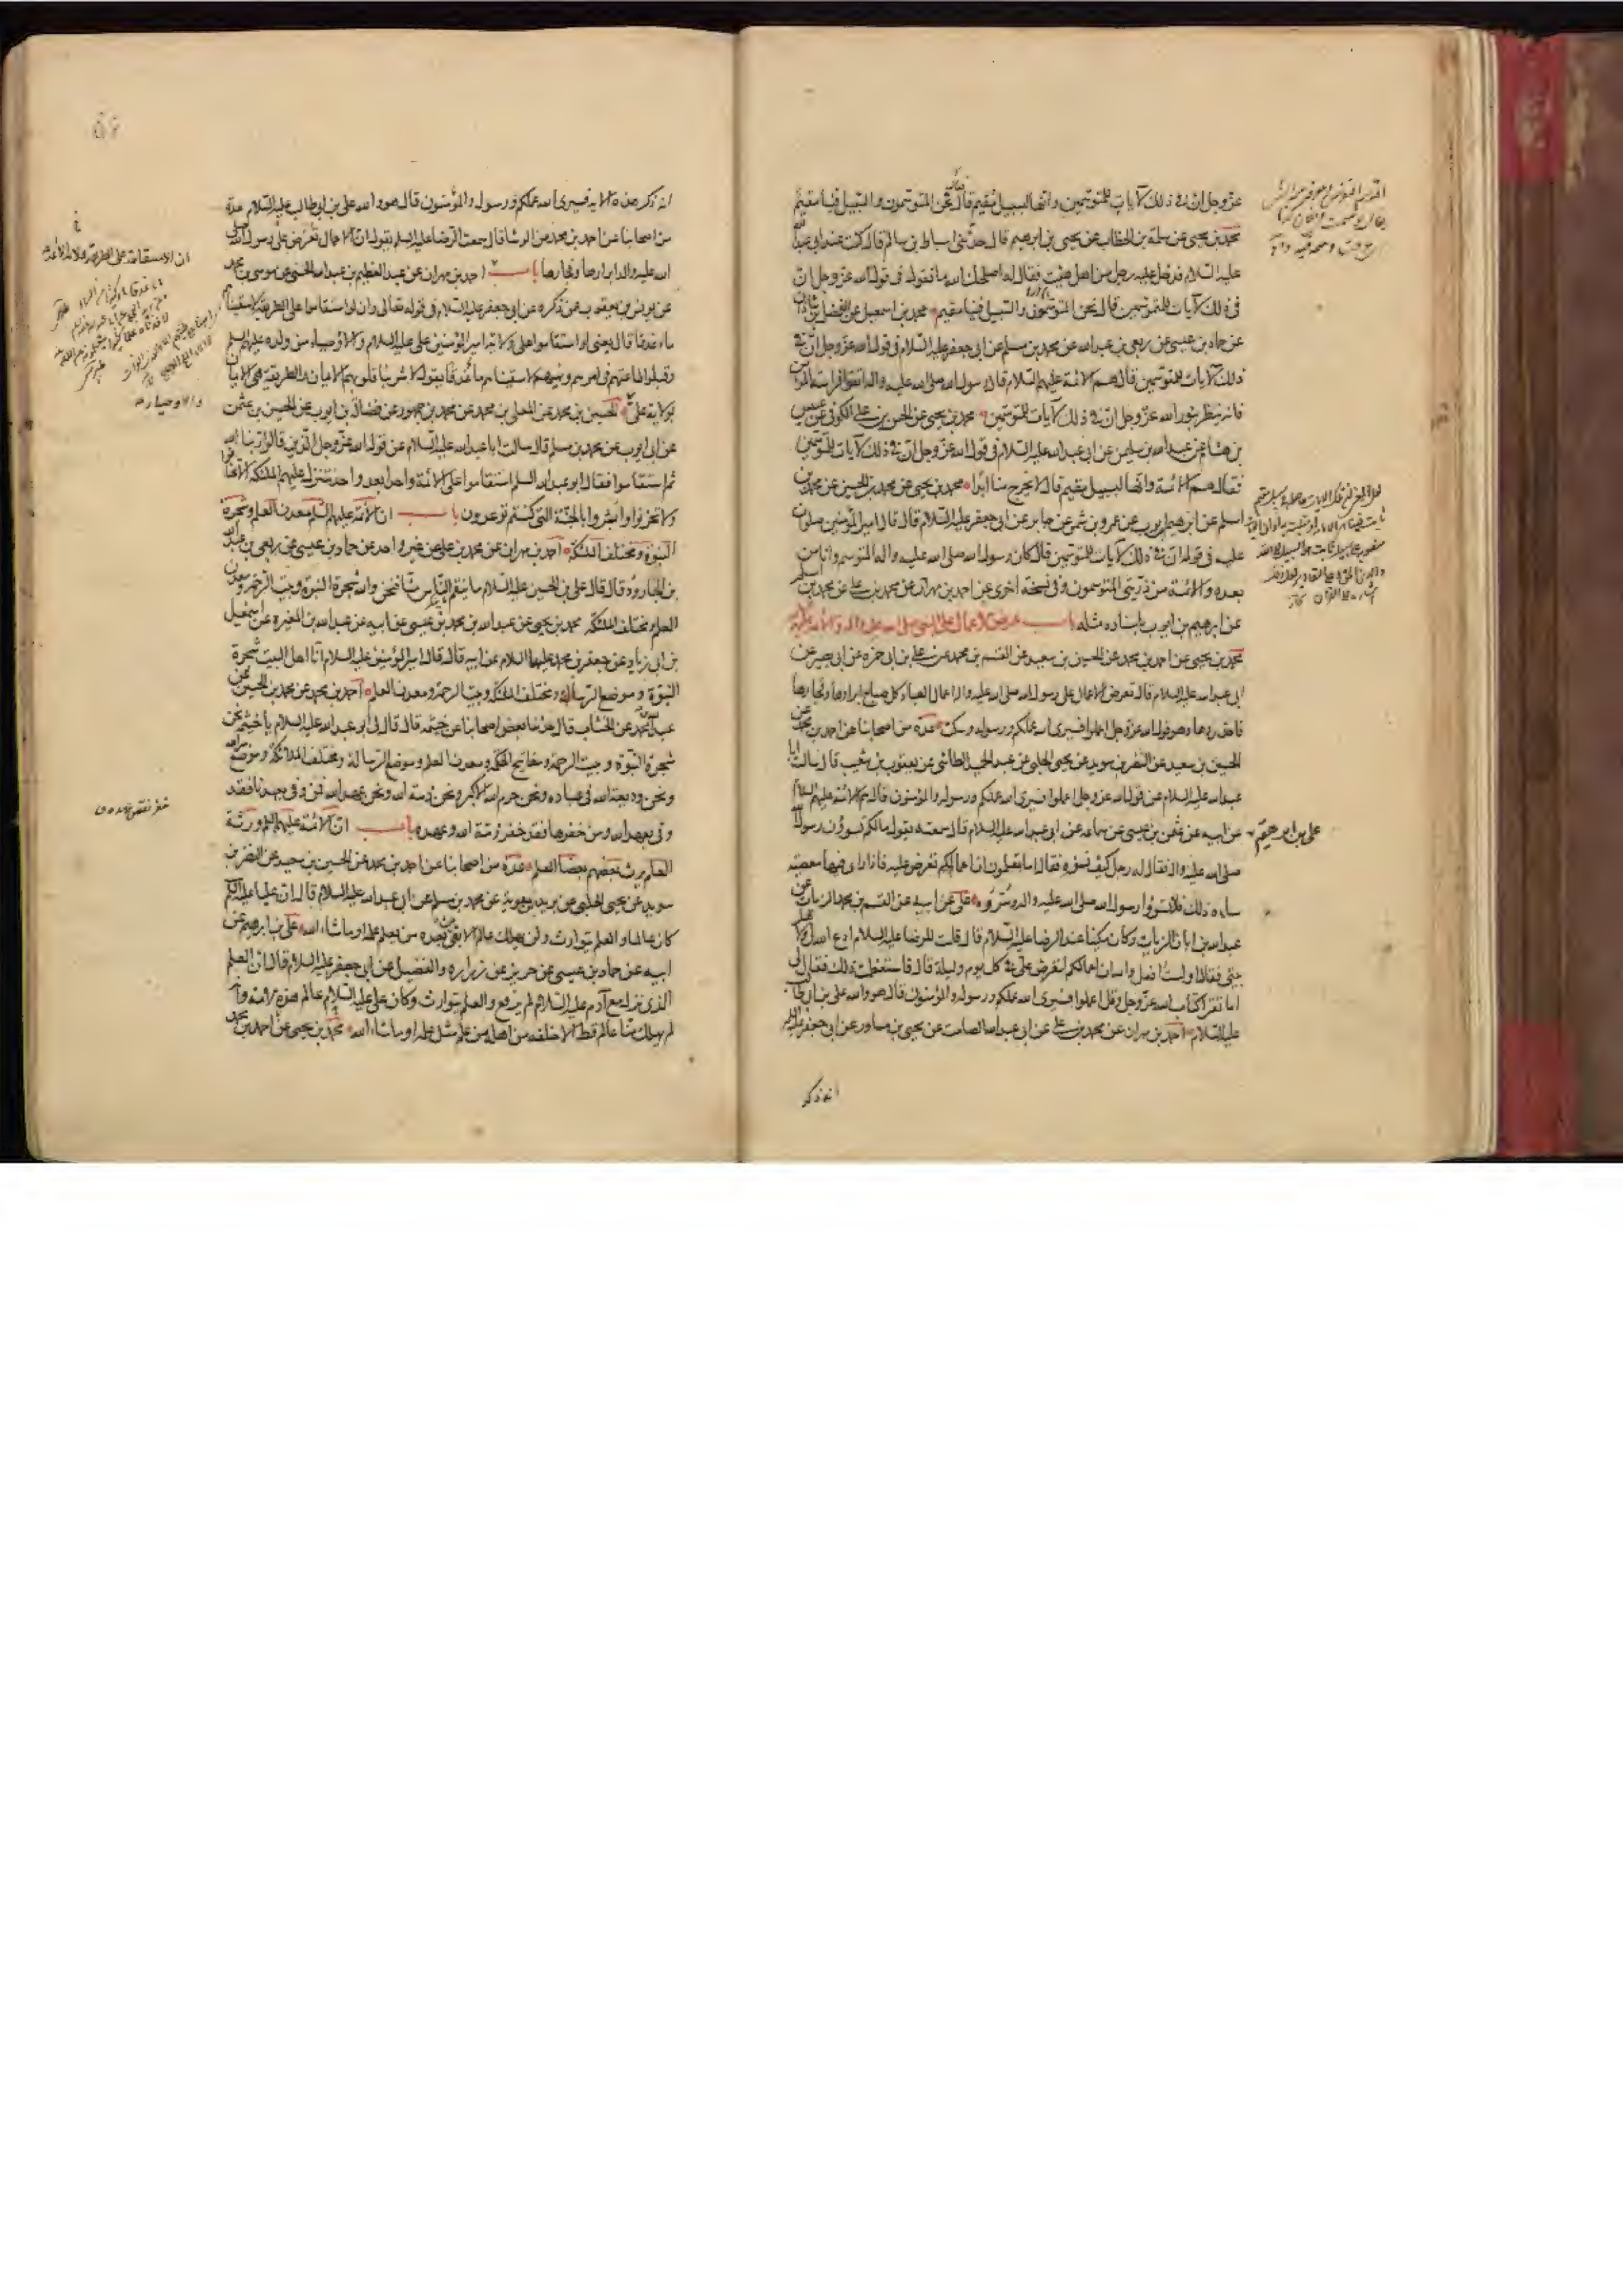 عز وجل ان في ذلك لآيات للمتوسمين وانها لبسبيل مقيم قال نحن المتوسمون والسبيل فينا مقيم
محمد بن يحيى عن سلمة بن الخطاب عن يحيى بن ابرهيم قال حدثني اسباط بن سالم قال كنت عند ابي عبد الله
عليه السلام فدخل عليه رجل من اهل هيت فقال له اصلحك الله ما تقول في قول الله عز وجل ان
في ذلك لآيات للمتوسمين قال نحن المتوسمون والسبيل فينا مقيم محمد بن اسمعيل عن الفضل بن شاذان
عن حماد بن عيسى عن ربعي بن عبد الله عن محمد بن مسلم عن ابي جعفر عليه السلام في قول الله عز وجل ان في
ذلك لآيات للمتوسمين قال هم الائمة عليهم السلام قال رسول الله صلى الله عليه واله اتقوا فراسة المؤمن
فانه ينظر بنور الله عز وجل ان في ذلك لآيات للمتوسمين محمد بن يحيى عن الحسن بن علي الكوفي عن عبيس
بن هشام عن عبد الله بن سليمن عن ابي عبد الله عليه السلام في قول الله عز وجل ان في ذلك لآيات للمتوسمين
فقال هم الائمة وانها لبسبيل مقيم قال لا يخرج منا ابدا محمد بن يحيى عن محمد بن الحسين عن محمد بن
اسلم عن ابرهيم بن ايوب عن عمرو بن شمر عن جابر عن ابي جعفر عليه السلام قال قال امير المؤمنين صلوات
عليه في قوله ان في ذلك لآيات للمتوسمين قال كان رسول الله صلى الله عليه واله المتوسم وانا من
بعده والائمة من ذريتي المتوسمون وفي نسخة اخرى عن احمد بن مهران عن محمد بن علي عن محمد بن اسلم
عن ابرهيم بن ايوب باسناده مثله باب عرض الاعمال على النبي صلى الله عليه واله والائمة عليهم
محمد بن يحيى عن احمد بن محمد عن الحسين بن سعيد عن القسم بن محمد عن علي بن ابي حمزة عن ابي بصير عن
ابي عبد الله عليه السلام قال تعرض الاعمال على رسول الله صلى الله عليه واله اعمال العباد كل صباح ابرارها وفجارها
فاحذروها وهو قول الله عز وجل اعملوا فسيرى الله عملكم ورسوله وسكت عدة من اصحابنا عن احمد بن محمد عن
الحسين بن سعيد عن النضر بن سويد عن يحيى الحلبي عن عبد الحميد الطائي عن يعقوب بن شعيب قال سالت ابا
عبد الله عليه السلام عن قول الله عز وجل اعملوا فسيرى الله عملكم ورسوله والمؤمنون قال هم الائمة عليهم السلام
علي بن ابرهيم
عن ابيه عن عثمن بن عيسى عن سماعة عن ابي عبد الله عليه السلام قال سمعته يقول مالكم تسوؤن رسول
صلى الله عليه واله فقال له رجل كيف نسوؤه فقال اما تعلمون ان اعمالكم تعرض عليه فاذا راى فيها معصية
ساءه ذلك فلا تسوؤا رسول الله صلى الله عليه واله وسروه علي عن ابيه عن القسم بن محمد الزيات عن
عبد الله بن ابان الزيات وكان مكينا عند الرضا عليه السلام قال قلت للرضا عليه السلام ادع الله لي ولاهل
بيتي فقال اولست افعل والله ان اعمالكم لتعرض علي في كل يوم وليلة قال فاستعظمت ذلك فقال لي
اما تقرا كتاب الله عز وجل وقل اعملوا فسيرى الله عملكم ورسوله والمؤمنون قال هو والله علي بن ابي طالب
عليه السلام احمد بن مهران عن محمد بن علي عن ابي عبد الله الصامت عن يحيى بن مساور عن ابي جعفر عليه السلام
انه ذكر
انه ذكر هذه الاية فسيرى الله عملكم ورسوله والمؤمنون قال هو والله علي بن ابي طالب عليه السلام عدة
من اصحابنا عن احمد بن محمد عن الوشا قال سمعت الرضا عليه السلم يقول ان الاعمال تعرض على رسول الله صلى
الله عليه واله ابرارها وفجارها باب احمد بن مهران عن عبد العظيم بن عبد الله الحسني عن موسى بن محمد
عن يونس بن يعقوب عمن ذكره عن ابي جعفر عليه السلام في قوله تعالى وان لو استقاموا على الطريقة لاسقيناهم
ماء غدقا قال يعني لو استقاموا على ولاية امير المؤمنين علي عليه السلام والاوصياء من ولده عليهم السلم
وقبلوا طاعتهم في امرهم ونهيهم لاسقيناهم ماء غدقا يقول لاشربنا قلوبهم الايمان والطريقة هي الايمان
بولاية علي الحسين بن محمد عن المعلى بن محمد عن محمد بن جمهور عن فضالة بن ايوب عن الحسين بن عثمن
عن ابي ايوب عن محمد بن مسلم قال سالت ابا عبد الله عليه السلام عن قول الله عز وجل الذين قالوا ربنا الله
ثم استقاموا فقال ابو عبد الله السلم استقاموا على الائمة واحدا بعد واحد تتنزل عليهم الملئكة الا تخافوا
ولا تحزنوا وابشروا بالجنة التي كنتم توعدون باب ان الائمة عليهم السلم معدن العلم وشجرة
النبوة ومختلف الملئكة احمد بن مهران عن محمد بن علي عن غير واحد عن حماد بن عيسى عن ربعي بن عبد الله
بن الجارود قال قال علي بن الحسين عليه السلام ما ينقم الناس منا فنحن والله شجرة النبوة وبيت الرحمة ومعدن
العلم ومختلف الملئكة محمد بن يحيى عن عبد الله بن محمد بن عيسى عن ابيه عن عبد الله بن المغيرة عن اسمعيل
بن ابي زياد عن جعفر بن محمد عليهما السلام عن ابيه قال قال امير المؤمنين عليه السلام انا اهل البيت شجرة
النبوة وموضع الرسالة ومختلف الملئكة وبيت الرحمة ومعدن العلم احمد بن محمد عن محمد بن الحسين عن
عبد الله بن محمد عن الخشاب قال حدثنا بعض اصحابنا عن خيثمة قال قال لي ابو عبد الله عليه السلام يا خيثمة نحن
شجرة النبوة وبيت الرحمة ومفاتيح الحكمة ومعدن العلم وموضع الرسالة ومختلف الملائكة وموضع سر الله
ونحن وديعة الله في عباده ونحن حرم الله الاكبر ونحن ذمة الله ونحن عهد الله فمن وفى بعهدنا فقد
وفى بعهد الله ومن خفرها فقد خفر ذمة الله وعهده باب ان الائمة عليهم السلم ورثة
العلم يرث بعضهم بعضا العلم عدة من اصحابنا عن احمد بن محمد عن الحسين بن سعيد عن النضر بن
سويد عن يحيى الحلبي عن بريد بن معوية عن محمد بن مسلم عن ابي عبد الله عليه السلام قال ان عليا عليه السلم
كان عالما والعلم يتوارث ولن يهلك عالم الا بقي من بعده من يعلم علمه او ما شاء الله علي بن ابرهيم عن
ابيه عن حماد بن عيسى عن حريز عن زرارة والفضيل عن ابي جعفر عليه السلام قال ان العلم
الذي نزل مع آدم عليه السلام لم يرفع والعلم يتوارث وكان علي عليه السلام عالم هذه الامة وانه
لم يهلك منا عالم قط الا خلفه من اهله من علم مثل علمه او ما شاء الله محمد بن يحيى عن احمد بن محمد
ان الاستقامة على الطريقة ولاية الائمة
والاوصياء
خفر نقض عهده